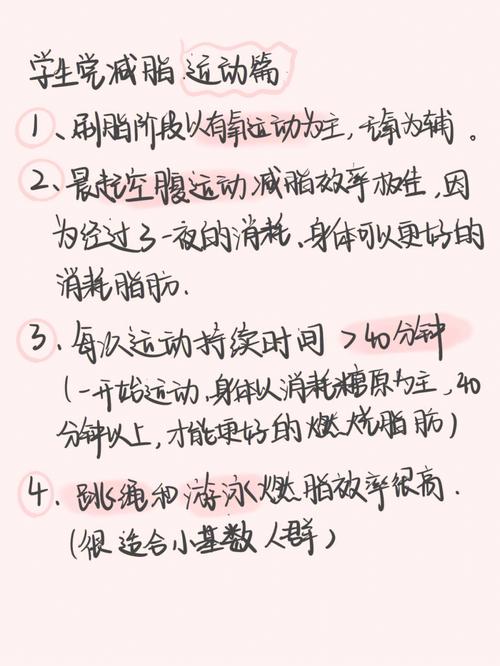 学生党减脂 运动篇
1、刷脂阶段以有氧运动为主,无氧为辅。
2、晨起空腹运动减脂效率极佳,因
为经过了一夜的消耗、身体可以更好的
消耗脂肪.
3、每次运动持续时间 >40分钟
(一开始运动,身体以消耗糖原为主,40
分钟以上,才能更好的燃烧脂肪)
4、跳绳和游泳燃脂效率很高.
(很适合小基数人群)